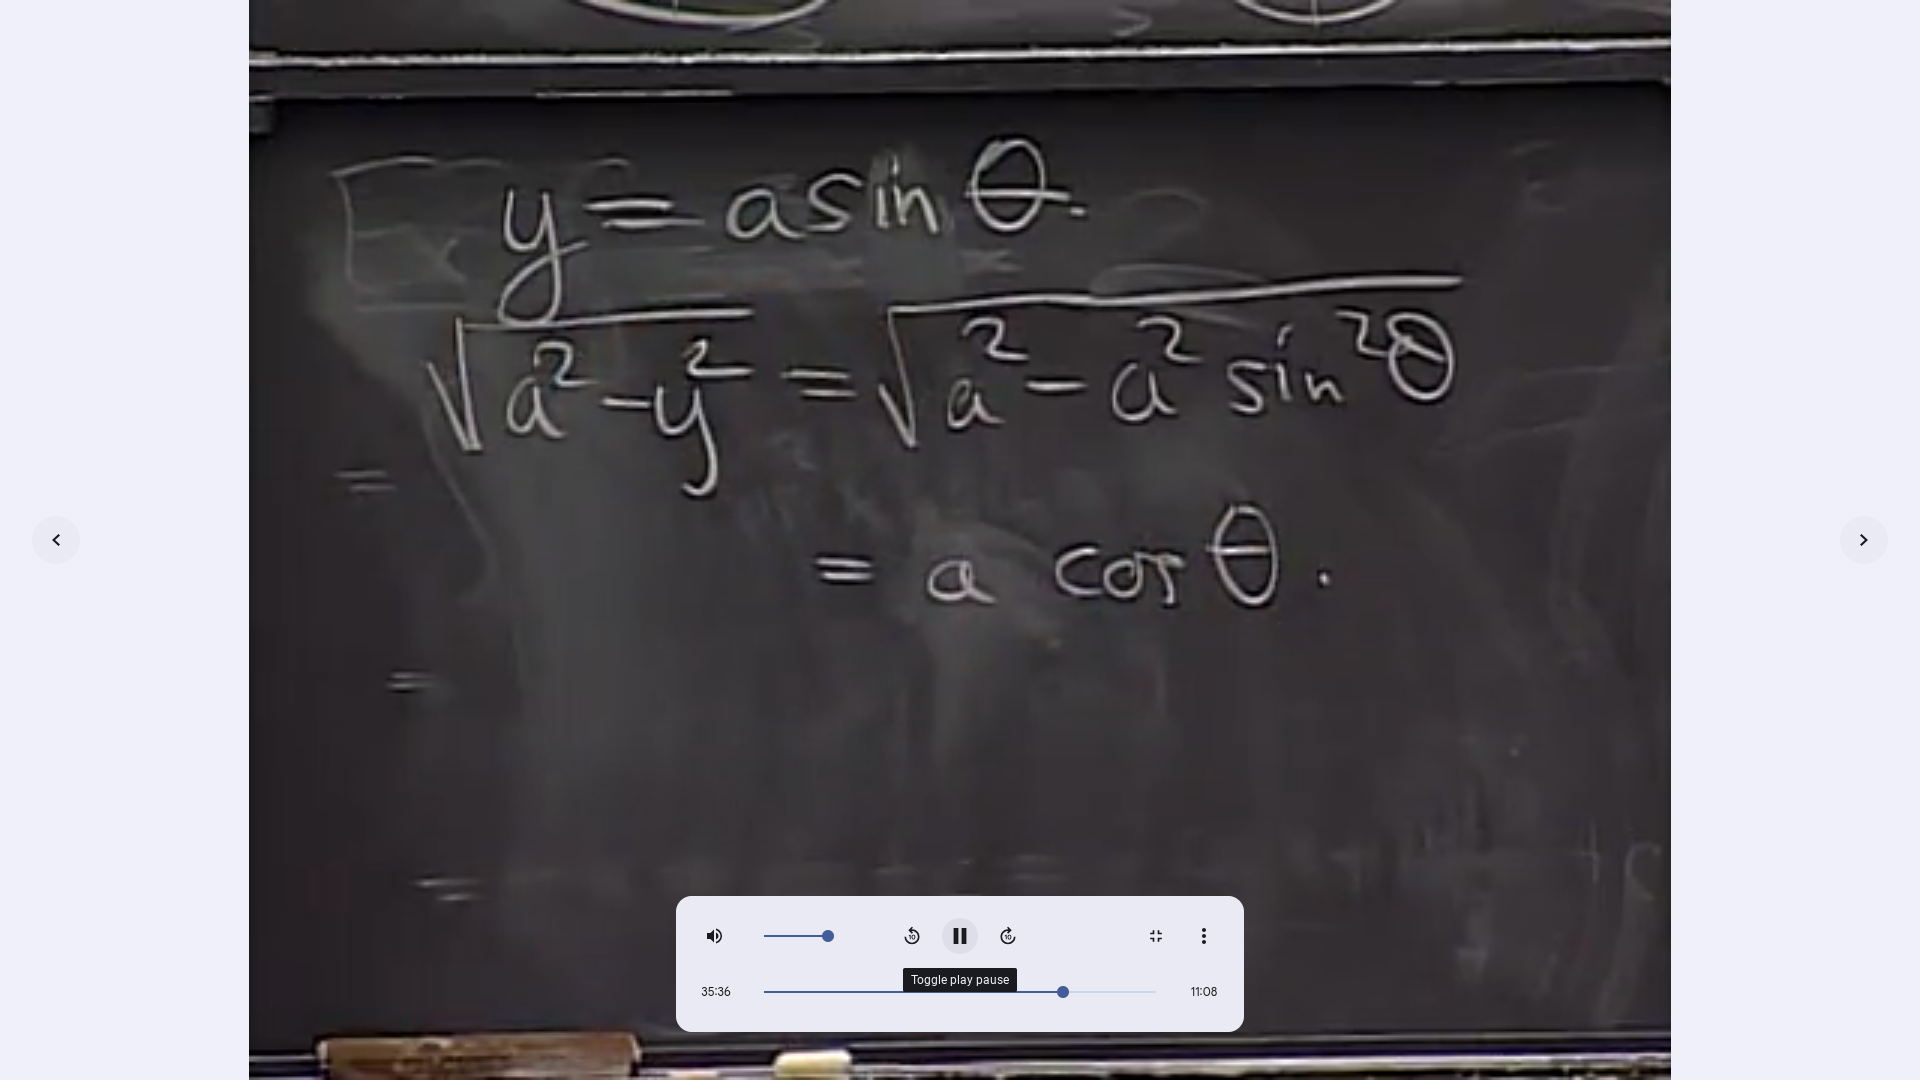 y = a sin θ.
√a² - y² = √a² - a² sin²θ
= a cos θ.
=
=
=
+ C
10
10
Toggle play pause
35:36
11:08